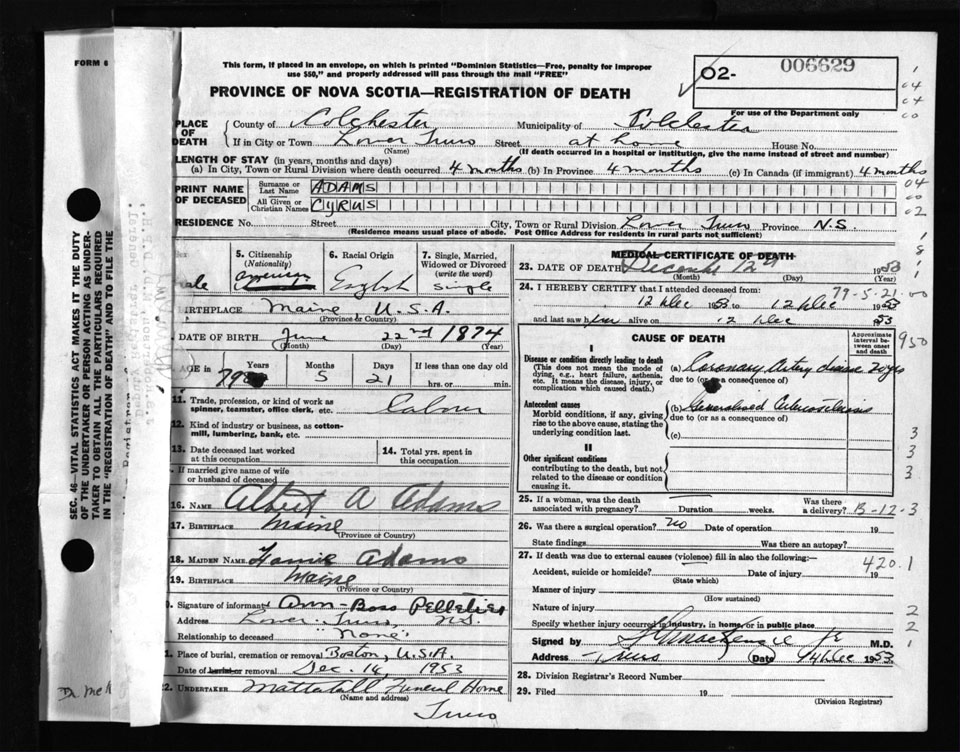 FORM 6
This form, if placed in an envelope, on which is printed "Dominion Statistics—Free, penalty for improper
use $50," and properly addressed will pass through the mail "FREE"
PROVINCE OF NOVA SCOTIA—REGISTRATION OF DEATH
O2- 006629
For use of the Department only
PLACE OF DEATH
County of Colchester Municipality of Colchester
If in City or Town Lower Truro Street at home House No.
(Name) (If death occurred in a hospital or institution, give the name instead of street and number)
LENGTH OF STAY (in years, months and days)
(a) In City, Town or Rural Division where death occurred 4 months (b) In Province 4 months (c) In Canada (if immigrant) 4 months
PRINT NAME OF DECEASED
Surname or Last Name ADAMS
All Given or Christian Names CYRUS
RESIDENCE No. Street City, Town or Rural Division Lower Truro Province N.S.
(Residence means usual place of abode. Post Office Address for residents in rural parts not sufficient)
SEC. 46—VITAL STATISTICS ACT MAKES IT THE DUTY
OF THE UNDERTAKER OR PERSON ACTING AS UNDER-
TAKER TO OBTAIN ALL THE PARTICULARS REQUIRED
IN THE "REGISTRATION OF DEATH" AND TO FILE THE
5. Citizenship (Nationality)
6. Racial Origin English
7. Single, Married, Widowed or Divorced (write the word) single
BIRTHPLACE Maine U.S.A.
(Province or Country)
DATE OF BIRTH June 22nd 1874
(Month) (Day) (Year)
AGE in Years 79 Months 5 Days 21 If less than one day old
hrs. or min.
11. Trade, profession, or kind of work as
spinner, teamster, office clerk, etc. Labour
12. Kind of industry or business, as cotton-
mill, lumbering, bank, etc.
13. Date deceased last worked
at this occupation
14. Total yrs. spent in
this occupation
If married give name of wife
or husband of deceased
16. NAME Albert A Adams
17. BIRTHPLACE Maine
(Province or Country)
18. MAIDEN NAME Adams
19. BIRTHPLACE Maine
(Province or Country)
Signature of informant Ann-Boss Pelletier
Address Lower Truro, N.S.
Relationship to deceased "None"
Place of burial, cremation or removal Boston, U.S.A.
Date of burial or removal Dec. 14, 1953
22. UNDERTAKER Mattatall Funeral Home
(Name and address)
Truro
MEDICAL CERTIFICATE OF DEATH
23. DATE OF DEATH December 12th 1953
(Month) (Day)
24. I HEREBY CERTIFY that I attended deceased from: 79-5-21-00
12 Dec 1953 12 Dec 1953
and last saw him alive on 12 Dec 1953
CAUSE OF DEATH
Approximate interval between onset and death
950
I
Disease or condition directly leading to death
(This does not mean the mode of
dying, e.g., heart failure, asthenia,
etc. It means the disease, injury, or
complication which caused death.)
(a) Coronary Artery disease
due to (or as a consequence of)
Antecedent causes
Morbid conditions, if any, giving
rise to the above cause, stating the
underlying condition last.
(b) Generalised Arteriosclerosis
due to (or as a consequence of)
(c)
II
Other significant conditions
contributing to the death, but not
related to the disease or condition
causing it.
3
3
3
25. If a woman, was the death
associated with pregnancy? Duration weeks. Was there
a delivery? B-12-3
26. Was there a surgical operation? no Date of operation 19
State findings Was there an autopsy?
27. If death was due to external causes (violence) fill in also the following:—
420.1
Accident, suicide or homicide? Date of injury 19
(State which)
Manner of injury
(How sustained)
Nature of injury
Specify whether injury occurred in industry, in home, or in public place
Signed by MacKenzie Jr M.D.
Address Truro Date 14 Dec 1953
28. Division Registrar's Record Number
29. Filed 19
(Division Registrar)